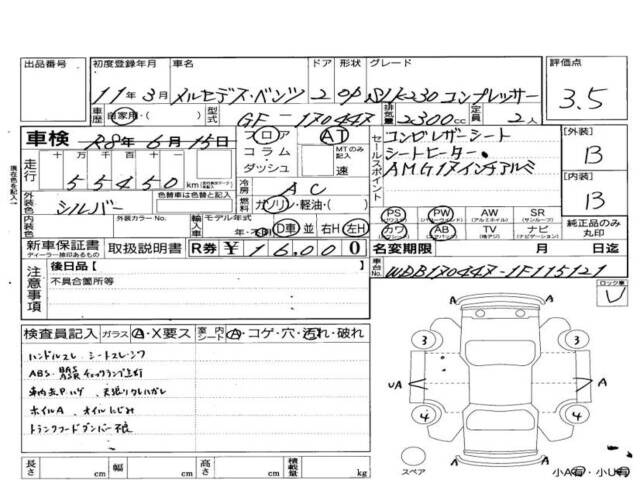 出品番号
初度登録年月 車名 ドア 形状 グレード 評価点
11年3月 メルセデス・ベンツ 2 OP SLK230 コンプレッサー 3.5
車歴 自家用・( ) 型式 GF-170447 排気量 2300cc 定員 2人
車検 R8年6月15日
フロア コラム・ダッシュ AT MTのみ記入 速
セールスポイント
コンビレザーシート
シートヒーター・
AMG17インチアルミ
[外装] B
[内装] B
走行 十万 万 千 百 十 一
55450 km
冷房 AC
外装色 シルバー 色替車は色替と記入
燃料 ガソリン・軽油・( )
内装色 外装カラーNo.
輸入車 モデル年式 年・不明 D車 並 右H 左H
PS PW AW SR
カワ AB TV ナビ
純正品のみ丸印
新車保証書 取扱説明書 R券 ¥16.000
ディーラー捺印あるもの
名変期限 月 日迄
車台No. WDB170447-1F115121
注意事項
後日品[ ]
不具合箇所等
ロック車
検査員記入 ガラス A・X要ス 室内シート A・コゲ・穴・汚れ・破れ
ハンドルスレ シートスレ シワ
ABS・BAS ASR チェックランプ点灯
車内臭 Pハゲ 天張りクリハガレ
ホイルA、オイルにじみ
トランクフードダンパー不良
3 3
UA A
4 4
A A
スペア
小A有・小U有
長さ cm 幅 cm 高さ cm 積載量 kg
現在色を記入